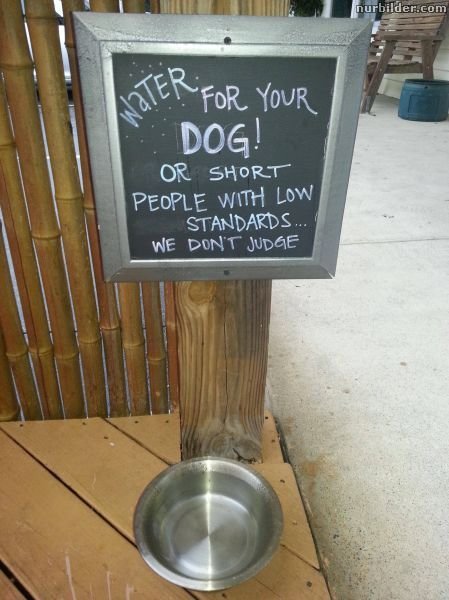 nurbilder.com
WaTER FOR YOUR
DOG!
OR SHORT
PEOPLE WITH LOW
STANDARDS...
WE DON'T JUDGE